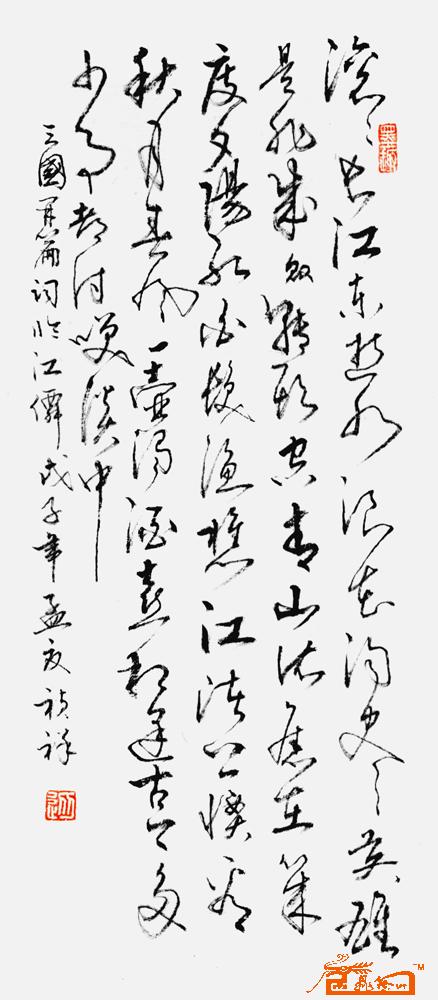 滚滚长江东逝水浪花淘尽英雄
是非成败转头空青山依旧在几
度夕阳红白发渔樵江渚上惯看
秋月春风一壶浊酒喜相逢古今多
少事都付笑谈中
三國開篇词临江仙戊子年孟夏祯祥